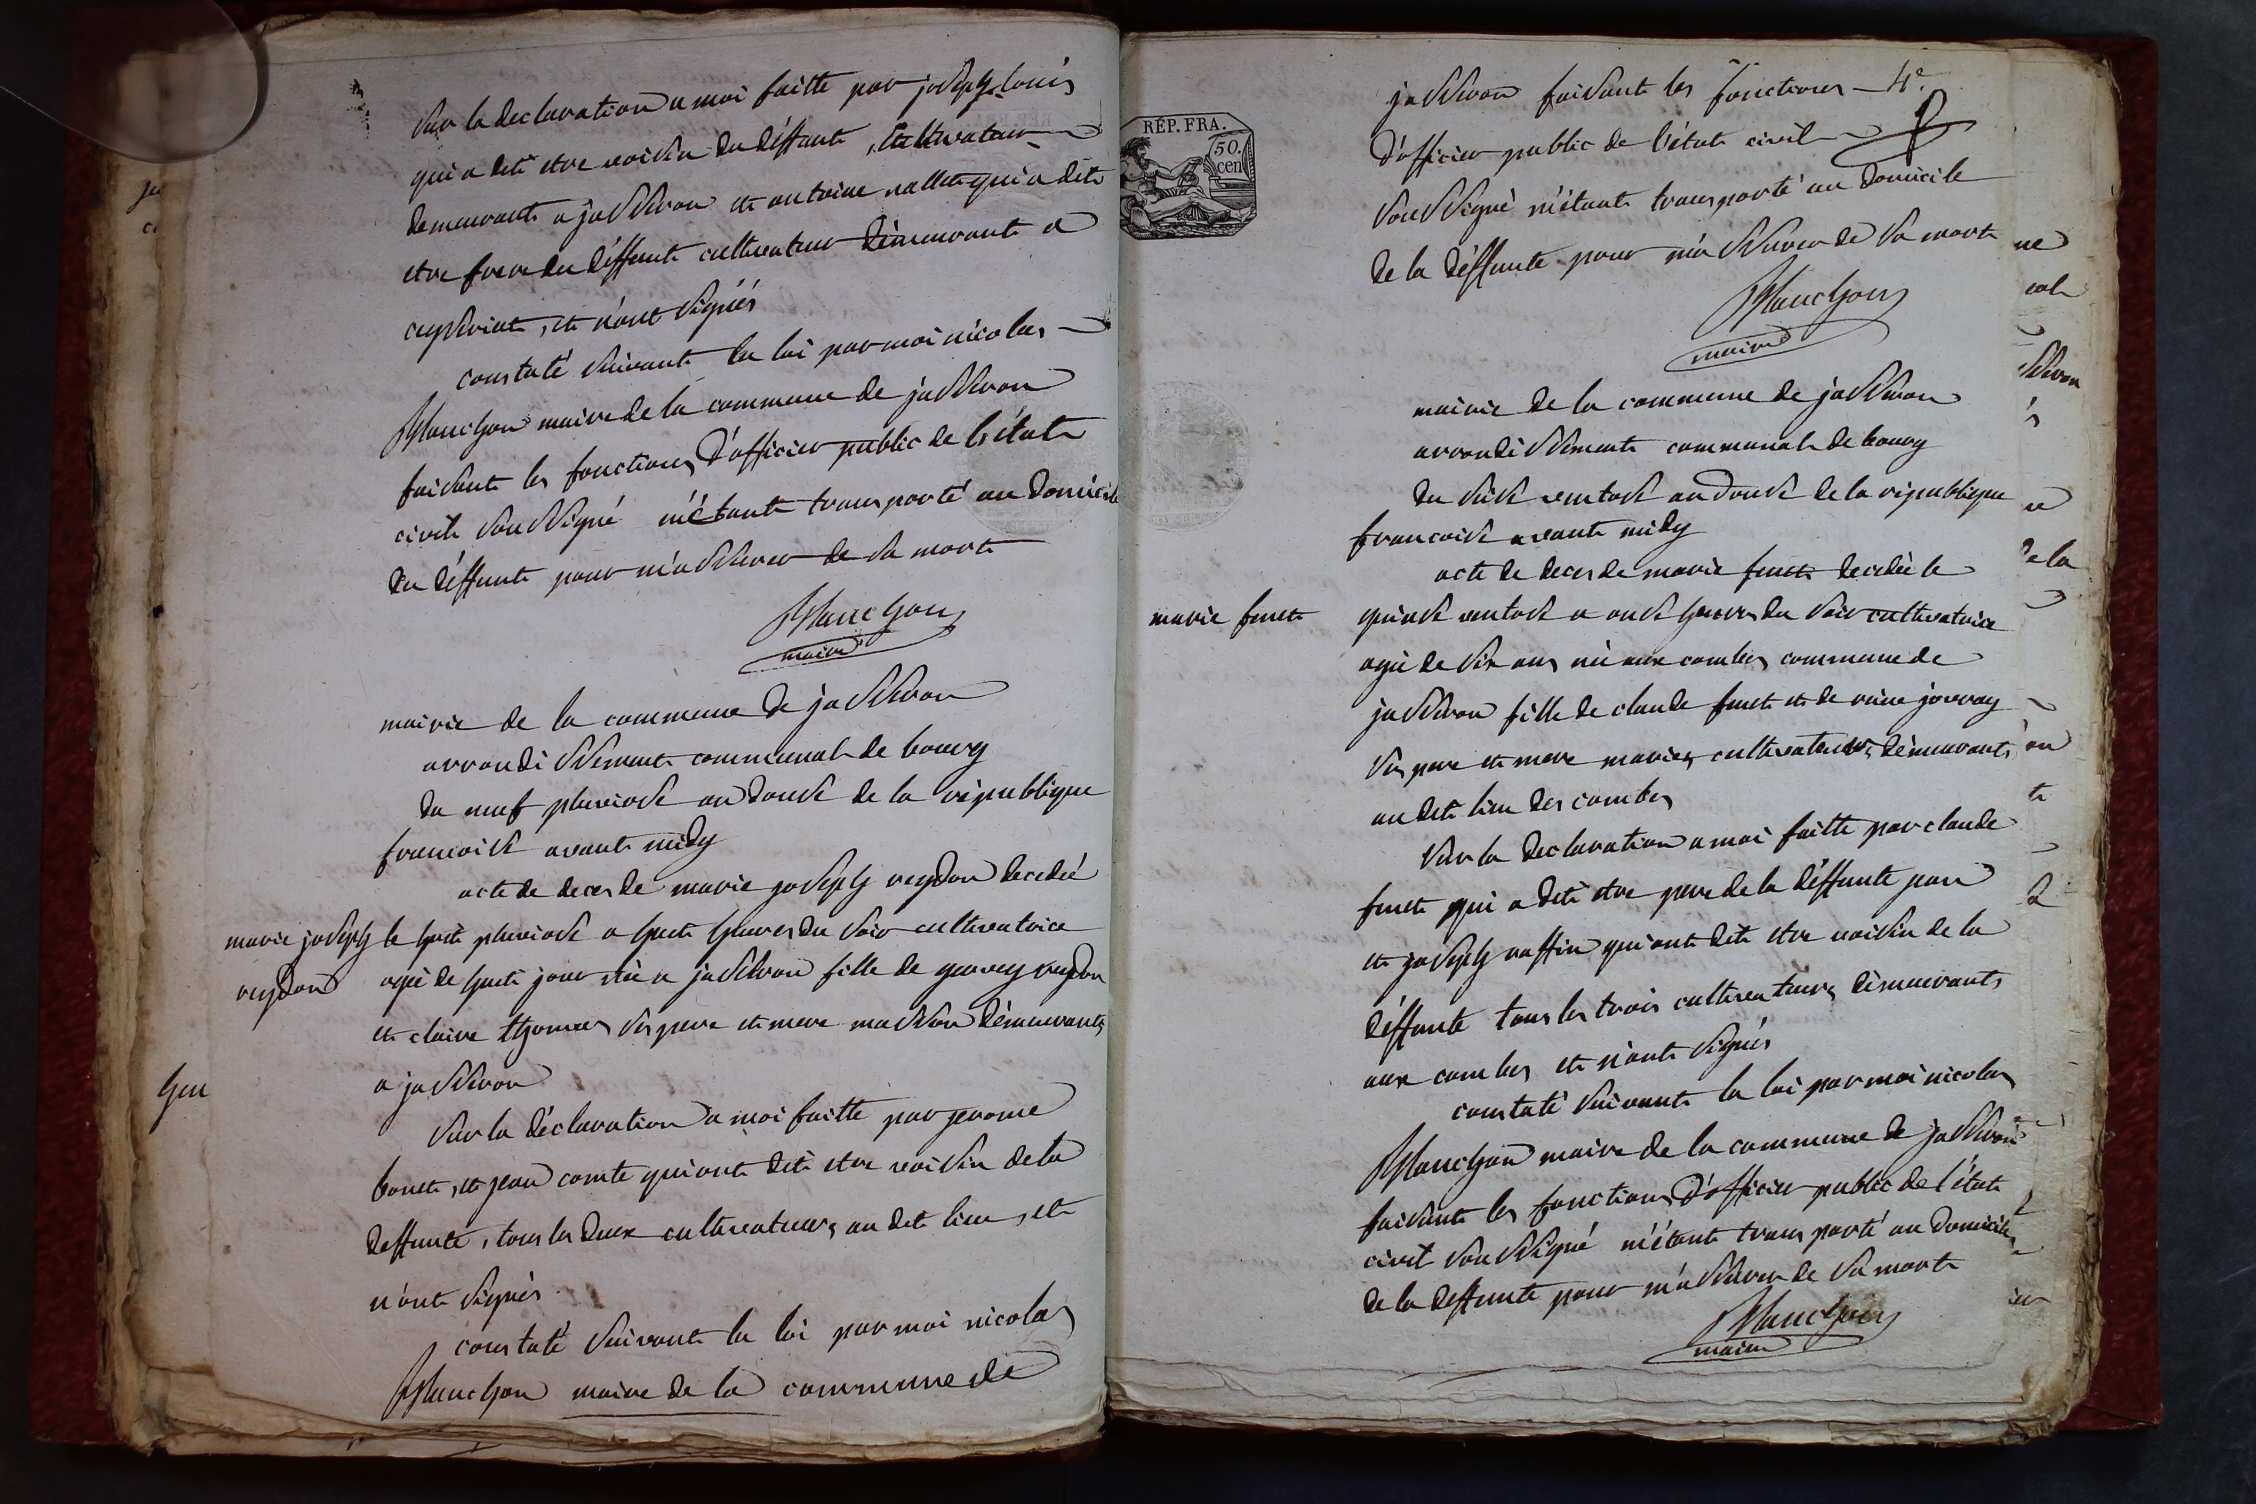 Sur la declaration a moi faitte par joseph louis
qui a dit etre voisin du déffunt, cultivateur
demeurant a jasseron et antoine vallet qui a dit
etre frere du déffunt cultivateur démeurant a
ceyseriat, et n'ont signés
constaté suivant la loi par moi nicolas
Planchon maire de la commune de jasseron
faisant les fonctions d'officier public de l'état
civil soussigné m'étant transporté au domicile
du déffunt pour m'assurer de sa mort
Planchon
maire
mairie de la commune de jasseron
arrondissement communal de bourg
du neuf pluviose an douse de la république
francoise avant midy
acte de deces de marie joseph reydon decedeé
marie joseph
reydon
le huit pluviose a huit heures du soir cultivatrice
agé de huit jour née a jasseron fille de reydon
et claire thomas ses pere et mere démeurants
a jasseron
Sur la déclaration a moi faitte par jerome
bonet, et jean comte qui ont dit etre voisin de la
deffunte, tous les deux cultivateurs au dit lieu, et
n'ont signés
constaté suivant la loi par moi nicolas
Planchon maire de la commune de
RÉP. FRA.
50.
cen
jasseron faisant les fonctions 4e.
d'officier public de l'état civil
soussigné m'étant transporté au domicile
de la déffunte pour m'assurer de sa mort
Planchon
maire
mairie de la commune de jasseron
arrondissement communal de bourg
du seise ventose an douse de la république
francoise avant midy
acte de deces de marie fenet decedée le
marie fenet
quinse ventose a onse heures du soir cultivatrice
agé de six ans né aux combes commune de
jasseron fille de claude fenet et de reine jovray
ses pere et mere mariés cultivateurs démeurants
au dit lieu des combes
Sur la declaration a moi faitte par claude
fenet qui a dit etre pere de la déffunte
et joseph raffin qui ont dit etre voisin de la
déffunte tous les trois cultivateurs démeurants
aux combes et n'ont signés
constaté suivant la loi par moi nicolas
Planchon maire de la commune de jasseron
faisant les fonctions d'officier public de l'état
civil soussigné m'étant transporté au domicile
de la deffunte pour m'assurer de sa mort
Planchon
maire